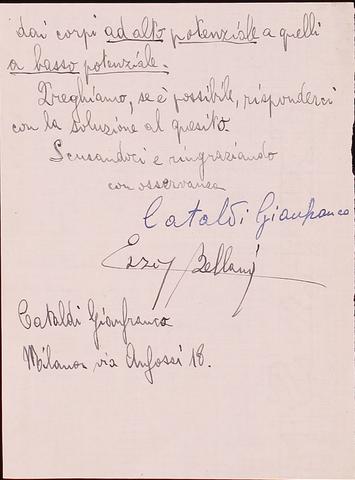 dai corpi ad alto potenziale a quelli
a basso potenziale.
Preghiamo, se è possibile, risponderci
con la soluzione al quesito.
Scusandoci e ringraziando
con osservanza
Cataldi Gianfranco
Enzo Bellani
Cataldi Gianfranco
Milano via Anfossi 18.